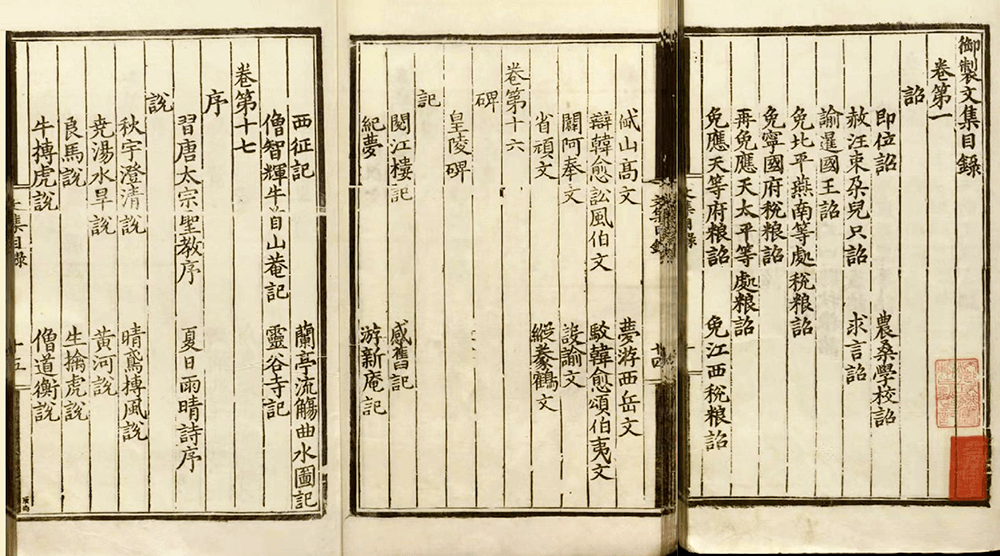 御製文集目錄
卷第一
詔
即位詔 農桑學校詔
赦汪束朶兒只詔 求言詔
諭暹國王詔
免北平燕南等處稅粮詔
免寧國府稅粮詔
再免應天太平等處粮詔
免應天等府粮詔 免江西稅粮詔
文集目錄
山高文 夢游西岳文
辯韓愈訟風伯文 駁韓愈頌伯夷文
闢阿奉文 設諭文
省頑文 縱豢鶴文
卷第十六
碑
皇陵碑
記
閱江樓記 感舊記
紀夢 游新庵記
西征記 蘭亭流觴曲水圖記
僧智輝牛首山菴記 靈谷寺記
卷第十七
序
習唐太宗聖教序 夏日雨晴詩序
說
秋宇澄清說 晴鳶搏風說
尭湯水旱說 黃河說
良馬說 生擒虎說
牛搏虎說 僧道衡說
文集目錄 十五